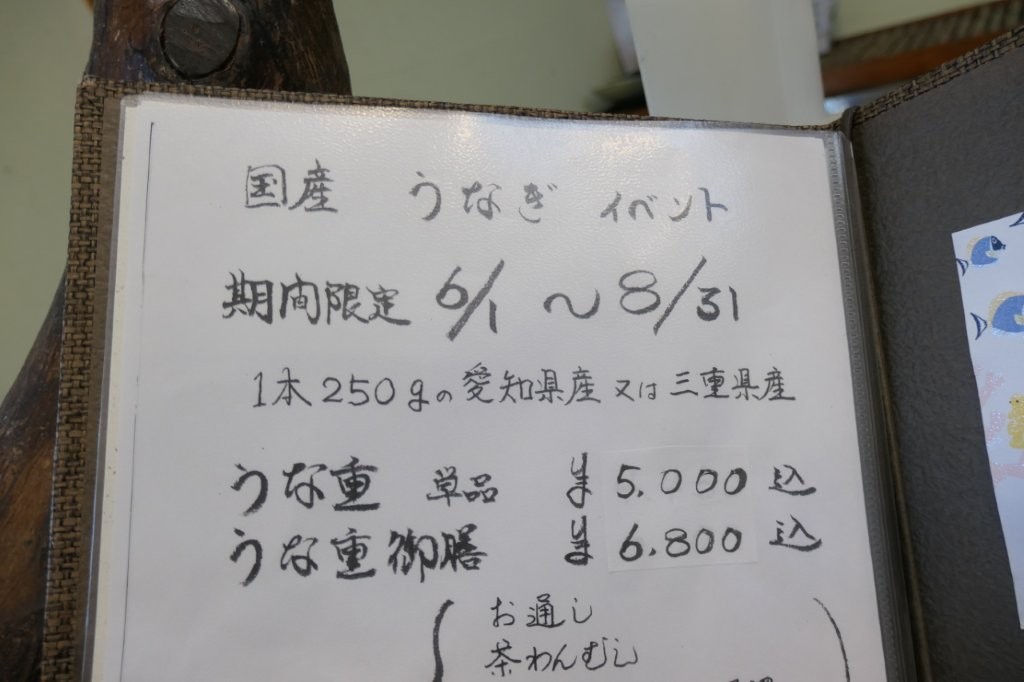 国産 うなぎ イベント
期間限定 6/1 〜 8/31
1本250gの愛知県産又は三重県産
うな重 単品 ¥5.000込
うな重御膳 ¥6.800込
お通し
茶わんむし